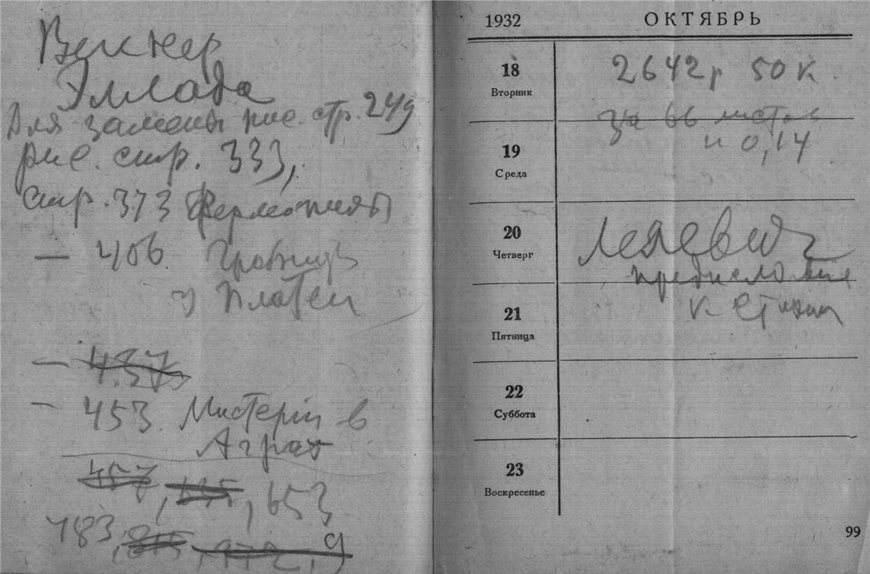 Вегнер
Эллада
Для замены рис. стр. 249
рис. стр. 333,
стр. 373 Фермопилы
— 406 Гробница
Платеи
— 437
— 453 Мистерии в
Аграх
457, 635, 653
783,
1932 ОКТЯБРЬ
18
Вторник
2642 р 50 к.
за 66 листов
и 0,14
19
Среда
20
Четверг
Лелевич
предисловие
к стихам
21
Пятница
22
Суббота
23
Воскресенье
99